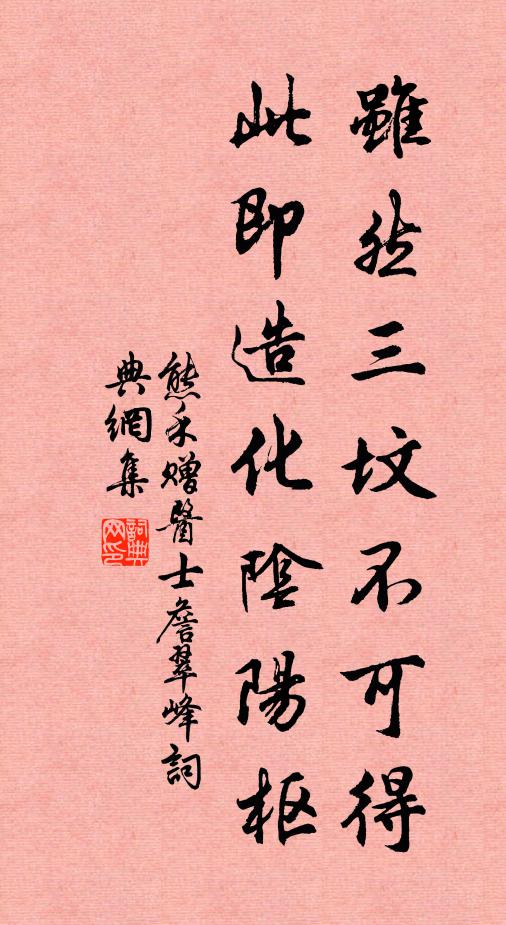 雖然三墳不可得
此即造化陰陽樞
熊禾贈醫士詹翠峰詞
典網集
詞典网印